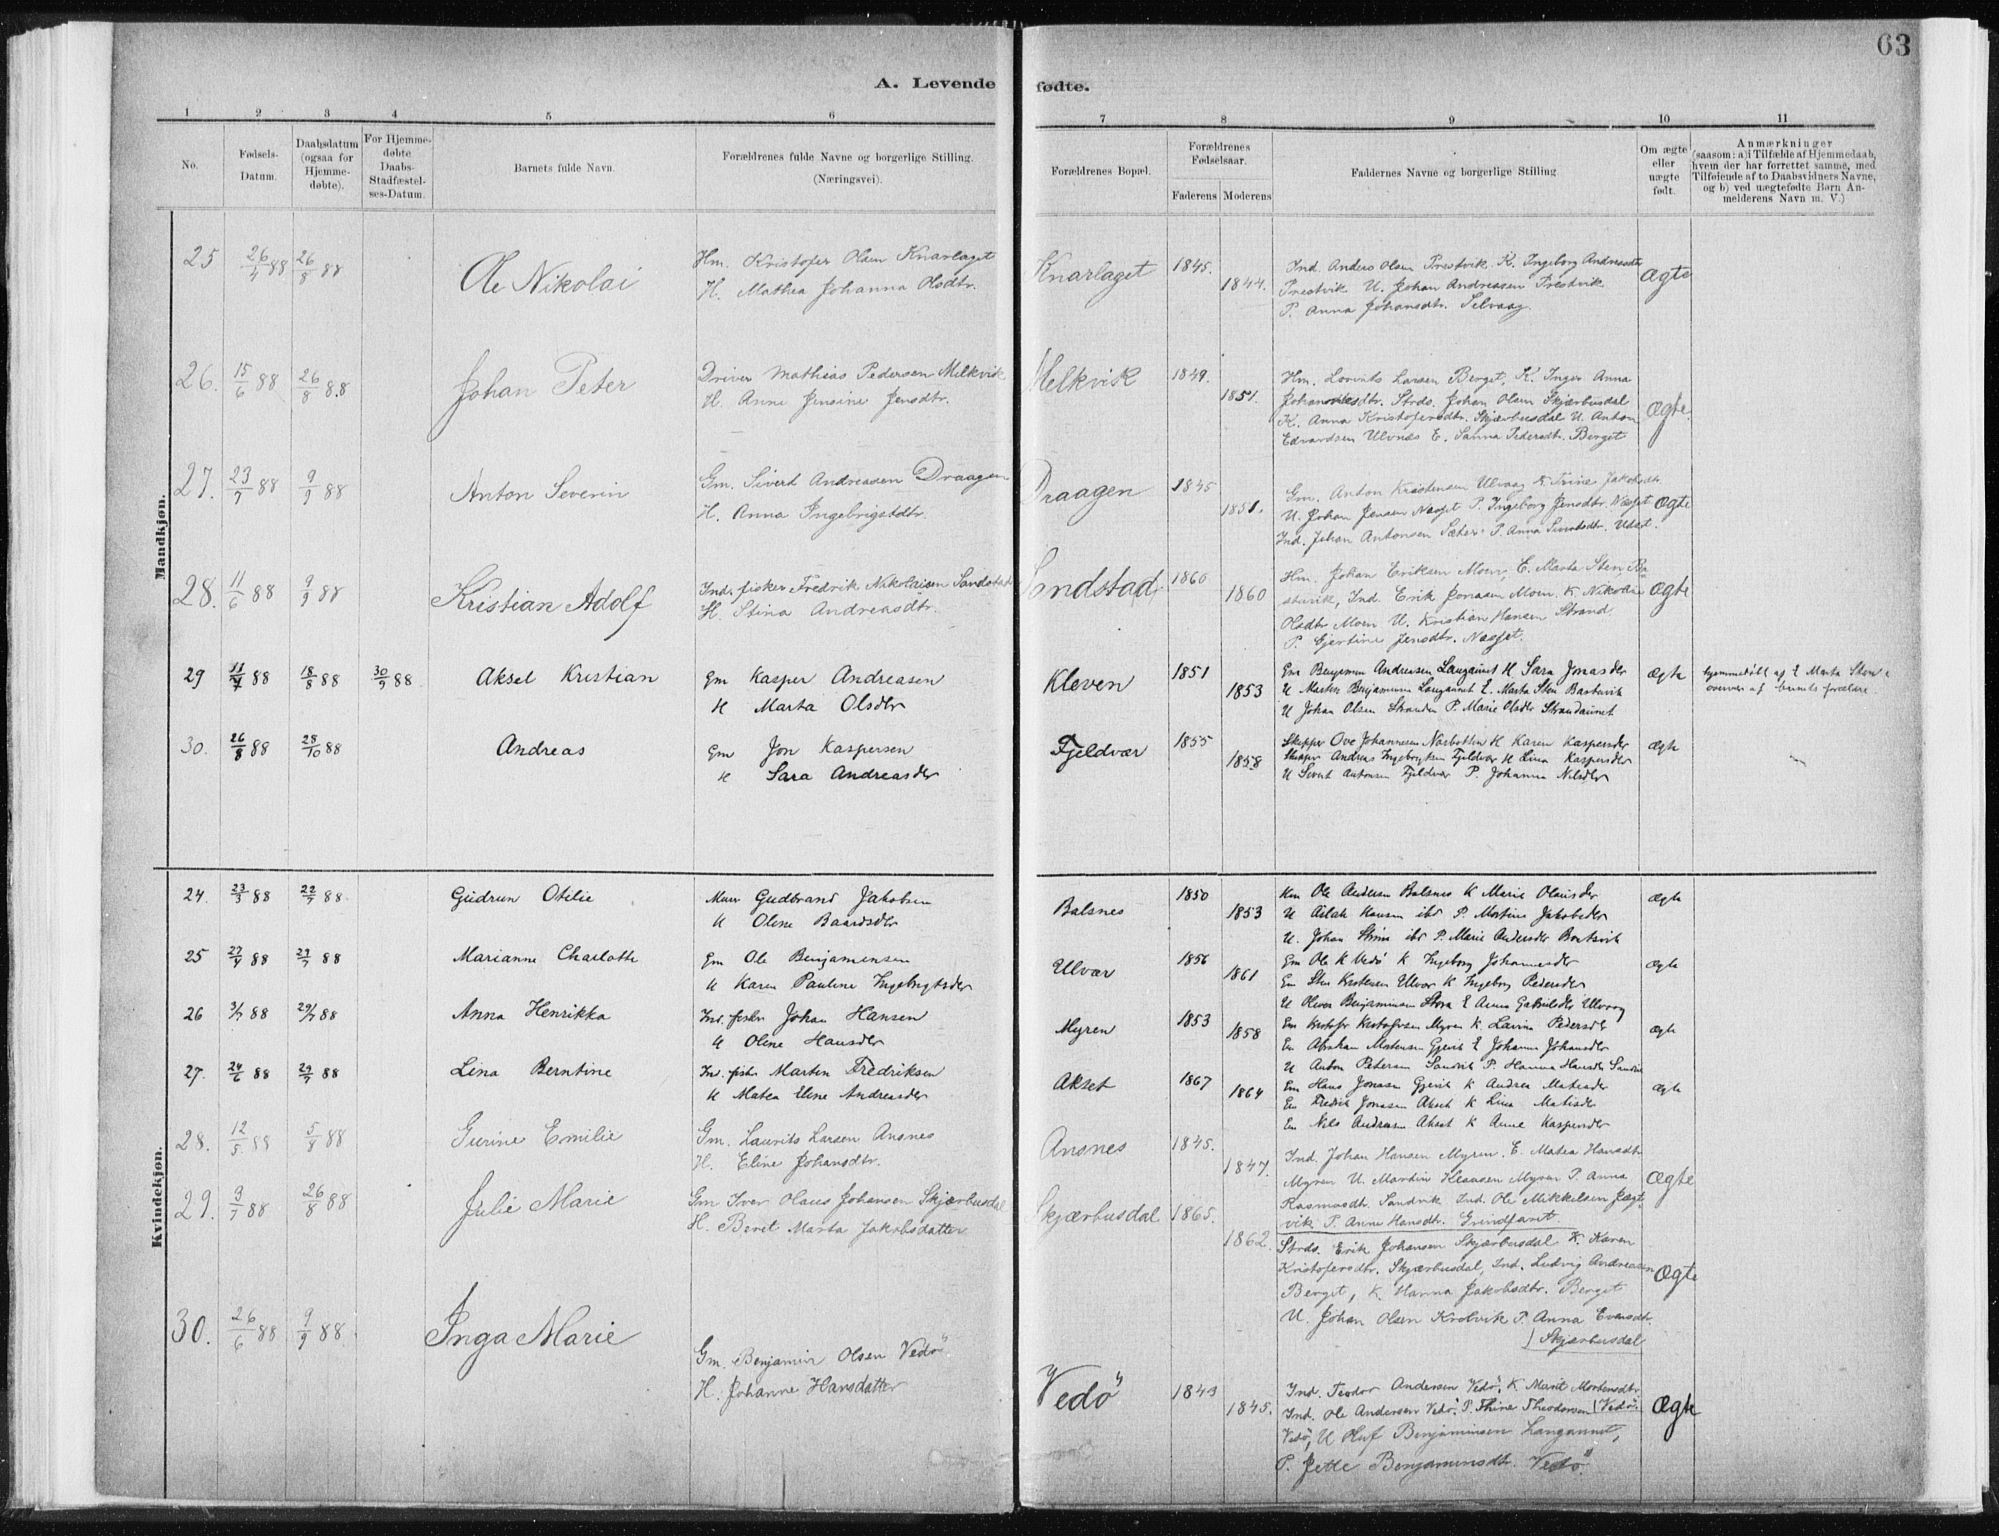 63
A. Levende fødte.
1 2 3 4 5 6 7 8 9 10 11
No.
Fødsels-Datum.
Daabsdatum (ogsaa for Hjemmedøbte).
For Hjemmedøbte Daabs-Stadfæstelses-Datum.
Barnets fulde Navn.
Forældrenes fulde Navne og borgerlige Stilling. (Næringsvei).
Forældrenes Bopæl.
Forældrenes Fødselsaar.
Faderens Moderens
Faddernes Navne og borgerlige Stilling
Om ægte eller uægte født.
Anmærkninger (saasom: a) i Tilfælde af Hjemmedaab, hvem der har forrettet samme, med Tilføiende af to Daabsvidners Navne, og b) ved uægtefødte Børn Anmelderens Navn m. V.)
Mandkjøn.
25 26/4 88 26/8 88 Ole Nikolai Hm. Kristofer Olsen Knarlaget Knarlaget 1845. Ind. Anders Olsen Prestvik. K. Ingeborg Andreasdtr
H. Mathea Johanna Olsdtr. 1844. Prestvik U. Johan Andreasen Prestvik Ægte
P. Anna Johansdtr. Selvaag.
26. 15/6 88 26/8 88 Johan Peter Driver Mathias Pedersen Melkvik Melkvik 1849. Hm. Lorents Larsen Berget, K. Inger Anna
H. Anne Jensine Jensdtr. 1851. Johannesdtr. Strds. Johan Olsen Skjærbusdal
K. Anna Kristofersdtr. Skjærbusdal U. Anton Ægte
Edvardsen Ulvnes E. Sanna Pedersdtr. Berget
27. 23/7 88 9/9 88 Anton Severin Gm. Sivert Andreasen Draagen Draagen 1845 Gm. Anton Kristensen Ulvaag K. Trine Jakobsdtr.
H. Anna Ingebrigtsdtr. 1851. U. Johan Jensen Nesset P. Ingeborg Jensdtr. Nesset Ægte
Ind. Johan Antonsen Sæter P. Anna Sivertsdtr.
28. 11/6 88 9/9 88 Kristian Adolf Ind. fisker Fredrik Nikolaisen Sandstad Sandstad 1860 Hm. Johan Eriksen Moen, E. Marta Sten Ba-
H. Stina Andreasdtr. 1860 stvik, Ind. Erik Jonasen Moen. K. Nikoline Ægte
Olsdtr Moen U. Kristian Hansen Strand
P. Gjertine Jensdtr. Nesset.
29 11/7 88 18/8 88 30/9 88 Aksel Kristian Gm Kasper Andreasen Kleven 1851 Gm Benjamin Andreasen Langaunet H Sara Jonasder Ægte hjemmedøbt af E Marta Sten i
H Marta Olsder 1853 U Morten Benjaminsen Langaunet E. Marta Sten Bastavik overvær af barnets forældre.
U Johan Olsen Stranden P Marie Olsder Strandaunet
30. 26/8 88 28/10 88 Andreas Gm Jon Kaspersen Fjeldvær 1855 Skipper Ove Johannesen Norbotten H Karen Kaspersder ægte
H Sara Andreasder 1858 Skipper Andreas Ingebrigtsen Fjeldvær H Lina Kaspersder
U Sivert Antonsen Fjeldvær P. Johanna Nilsder
Kvindekjøn.
24. 23/3 88 22/7 88 Gudrun Otilie Murer Gudbrand Jakobsen Balsnes 1850 Km Ole Andersen Balsnes K Marie Olausder ægte
H Oline Baardsder 1853 U Adlak Hansen ibd P. Martine Jakobsder
U. Johan Strøm ibd P. Marie Andersder
25 27/4 88 29/7 88 Marianne Charlotte Gm Ole Benjaminsen Ulvær 1856 Gm Ole K Vedø K Ingeborg Johannesder ægte
H Karen Pauline Ingebrigtsder 1861 Gm Sten Kristensen Ulvær K Ingeborg Pedersder
U Oliver Benjaminsen Store E Anna Gabrielsder Ulvaag
26 3/7 88 29/7 88 Anna Henrikka Ind. fisker Johan Hansen Myren 1853 Gm Kristofer Kristofersen Myren K. Lavina Pedersder ægte
H Oline Hansder 1858 Em Abraham Mortensen Gjevik E Johanna Johansder
U Anton Petersen Sandvik P. Hanna Hansder Sandvik
27. 24/6 88 29/7 88 Lina Berntine Ind. fisker Martin Fredriksen Akset 1867 Em Hans Jonasen Gjevik K Andrea Matisder ægte
H Matea Eline Andreasder 1864 Em Fredrik Jonasen Akset K Lina Matisder
Em Nils Andreasen Akset K Anne Kaspersder
28. 12/5 88 5/8 88 Gurine Emilie Gm. Laurits Larsen Ansnes Ansnes 1845. Ind. Johan Hansen Myren. E. Matea Hansdtr.
H. Eline Johansdtr. 1847. Myren U. Martin Klausen Myren P. Anna Ægte
Rasmusdtr. Sandvik Ind. Ole Mikkelsen Jægt-
vik P. Anne Hansdtr. Grindfaret
29. 9/7 88 26/8 88 Julie Marie Gm Iver Olaus Johansen Skjærbusdal Skjærbusdal 1865.
H. Beret Marta Jakobsdatter 1862. Strds. Erik Johansen Skjærbusdal K. Karen
Kristofersdtr. Skjærbusdal, Ind. Ludvig Andreasen Ægte
Berget, K. Hanna Jakobsdtr. Berget
U. Johan Olsen Krokvik P. Anna Eversdtr.
Skjærbusdal
30. 26/6 88 9/9 88 Inga Marie Gm. Benjamin Olsen Vedø
H. Johanne Hansdatter Vedø 1843 Ind. Teodor Andersen Vedø, K. Marit Mortensdtr.
1845. Ind. Ole Andersen Vedø, P. Trine Theodorsen Vedø Ægte
Vedø, U Oluf Benjaminsen Langaunet,
P. Jette Benjaminsdtr. Vedø